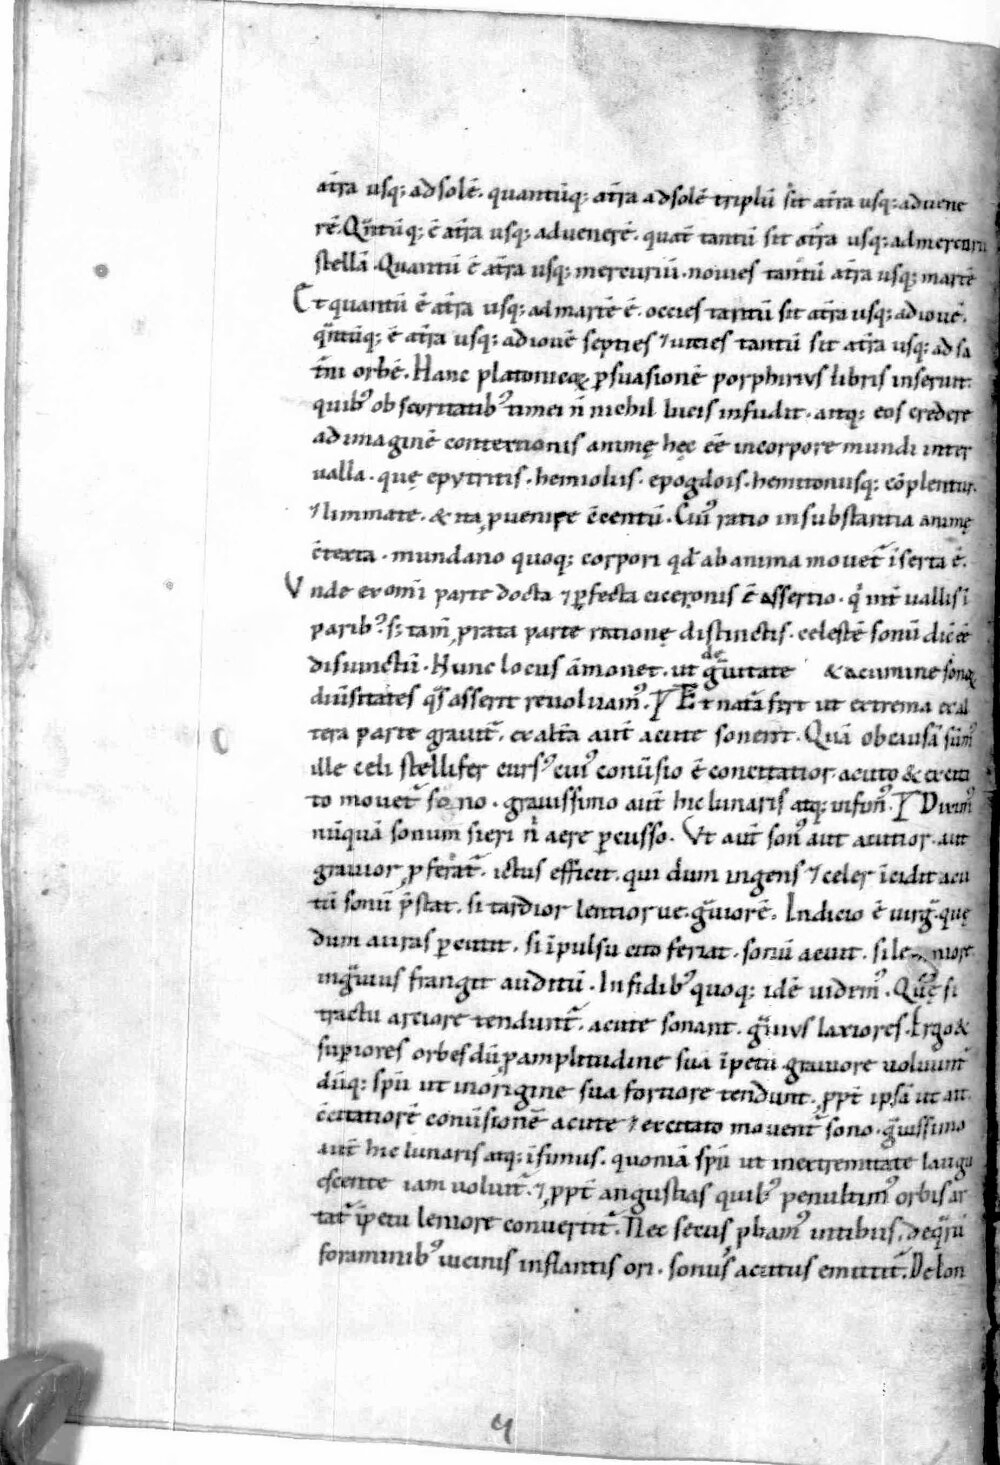 at̄ra usq; ad solē. quantūq; at̄ra ad solē triplū sit at̄ra usq; ad vene
rē. Qn̄tūq; ē at̄ra usq; ad venerē. quat̄ tantū sit at̄ra usq; ad mercurii
stellā. Quantū ē at̄ra usq; mercuriū. novies tantū at̄ra usq; martē
Et quantū ē at̄ra usq; ad martē ē. occies tantū sit at̄ra usq; ad iovē.
qn̄tūq; ē at̄ra usq; ad iovē septies ⁊ vicies tantū sit at̄ra usq; ad sa
t̄ni orbē. Hanc platonicoꝝ ꝑsuasionē porphirius libris inseruit.
quibꝰ obscuritatibꝰ timei n̄ nichil lucis infudit. atq; eos credere
ad imaginē contextionis animę hęc eē in corpore mundi inter
valla. quę epytritis. hemiolus. epogdois. hemitonusq; cōplentur.
⁊ limmate. & ita ꝓvenire c̄centū. Cuiꝰ ratio in substantia animę
c̄texta. mundano quoq; corpori qd̄ ab anima movet᷑ īserta ē.
Unde ex om̄i parte docta ⁊ ꝑfecta ciceronis ē assertio. qͥ int̄vallis ī
paribꝰ. sꝫ tam̄ ꝓ rata parte rationę distinctis. celestē sonū dic̄ ēē
disiunctū. Hunc locus āmonet. ut de gᷓvitate & acumine sonoꝝ
div̄sitates qͣs asserit revolvamꝰ. Et nat̄a fert ut extrema ex al
tera parte gravit᷑. ex alt̄a aut̄ acute sonent. Quā ob causā sūmꝰ
ille celi stellifer cursꝰ cuiꝰ conv̄sio ē concitatior. acuto & excita
to movet᷑ sono. gravissimo aut̄ hic lunaris atq; infimꝰ. Diximꝰ
nūquā sonum fieri nͥ aere ꝑcusso. Ut aut̄ sonꝰ aut acutior. aut
gravior ꝓferat᷑. ictus efficit. qui dum ingens ⁊ celer īcidit acu
tū sonū p̄stat. si tardior lentiorve. gᷓviorē. Indicio ē virgᷓ. quę
dum auras ꝑcutit. si īpulsu cito feriat. sonū acuit. si le niore
in gᷓvius frangit auditū. In fidibꝰ quoq; idē vidimꝰ. Quę si
tractu arciore tendunt᷑. acute sonant. gᷓvius laxiores. Ergo &
suꝑiores orbes dū ꝓ amplitudine sua īpetu graviore volvunt᷑
dūq; spū ut in origine sua fortiore tendunt. ꝓpt̄ ipsā ut ait.
c̄citatiorē conv̄sionē acute ⁊ excitato movent᷑ sono. gᷓvissimo
aut̄ hic lunaris atq; īfimus. quoniā spū ut in extremitate langu
escente iam volvit᷑. ⁊ ꝓpt̄ angustias quibꝰ penultimꝰ orbis ar
tat᷑ īpetu leniore convertit᷑. Nec secus ꝓbamꝰ in tibiis. de qͣꝝ
foraminibꝰ vicinis inflantis ori. sonus acutus emittit᷑. De lon
4